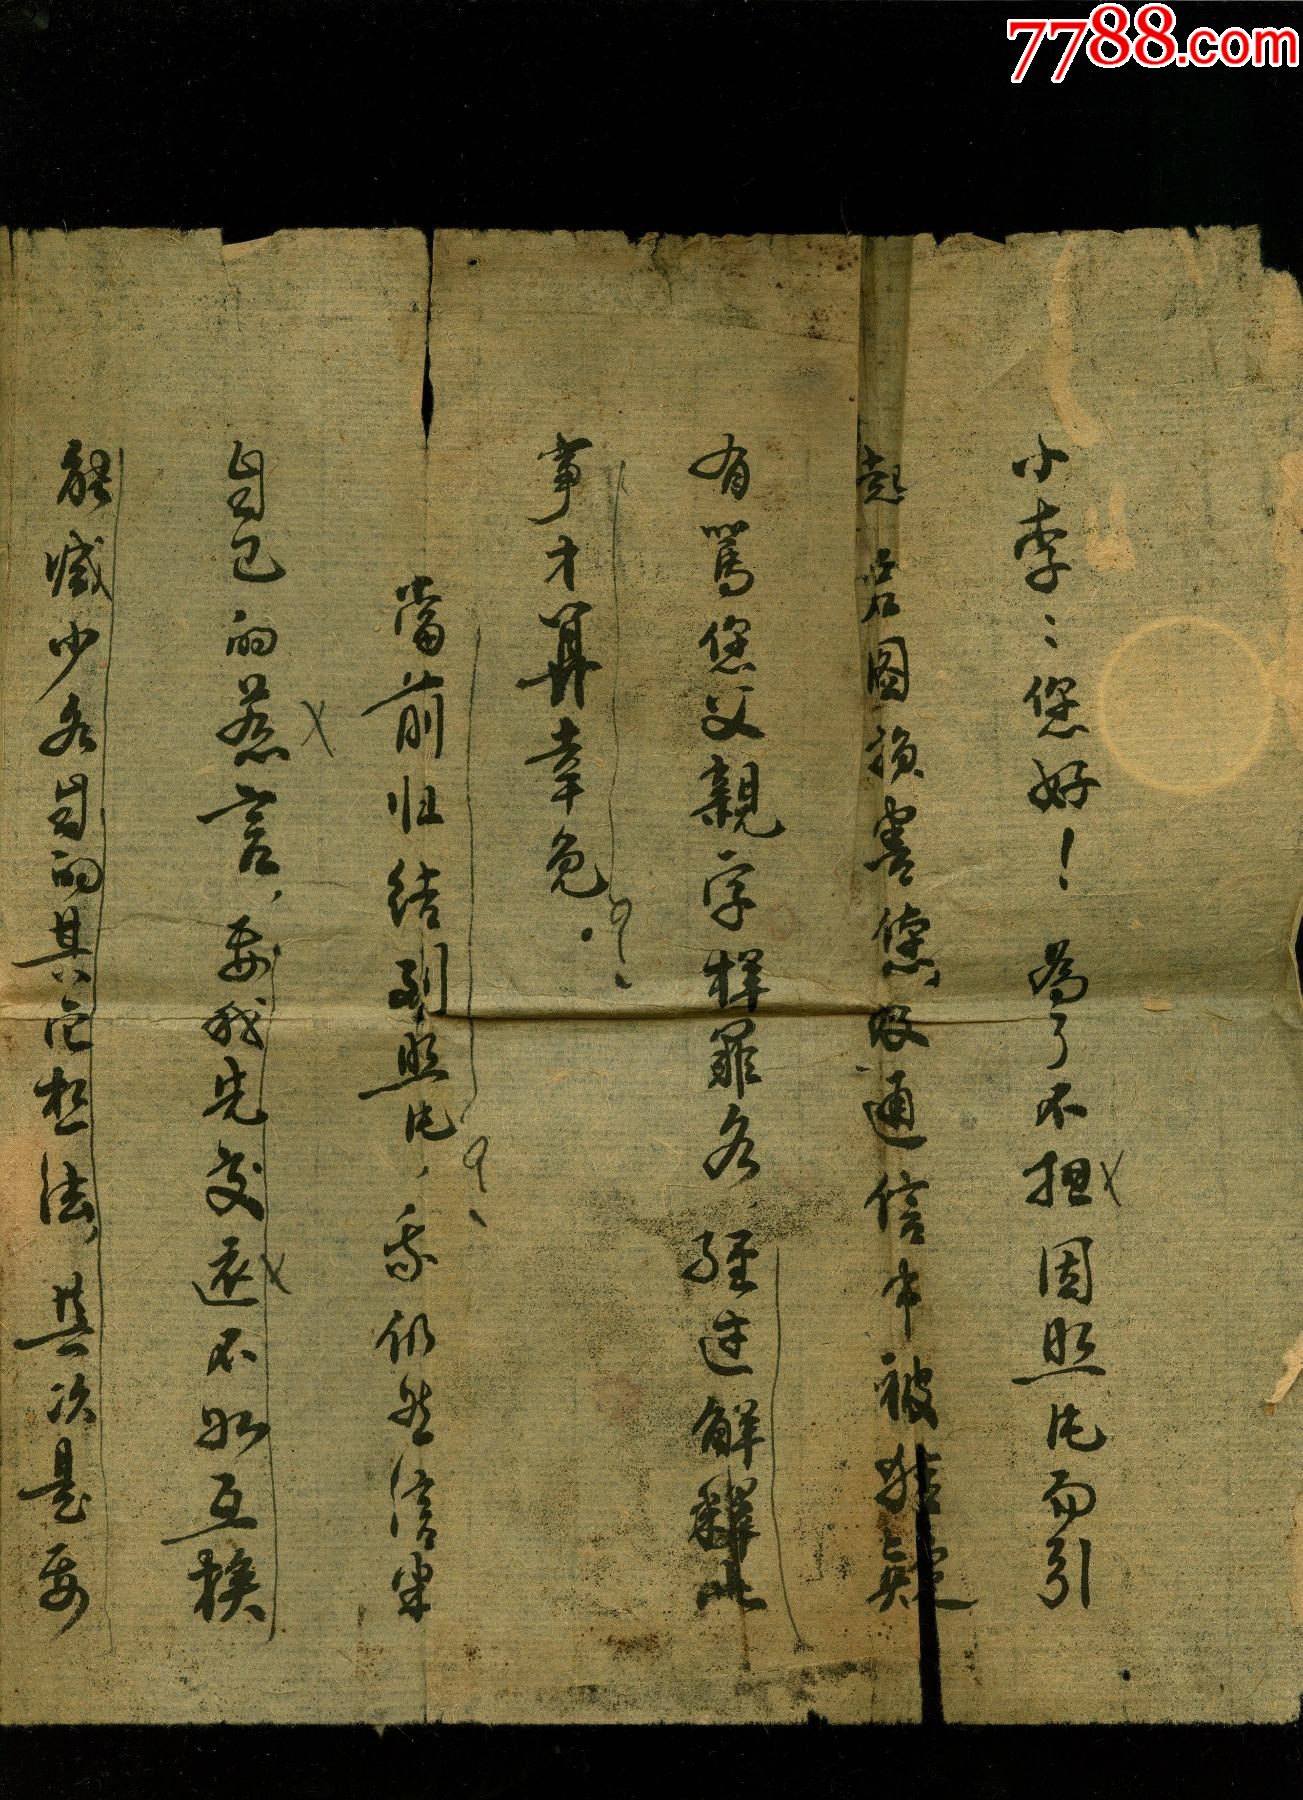 7788.com
小李：您好！为了不担因照片而引
起若图损害您，及通信中被猜疑
有骂您父親字样罪名，經过解釋此
事才算幸免。
當前归结到照片，我仍然信守
自己的惹言，要我先交还不如互换
能减少各自的其它想法，其次是要